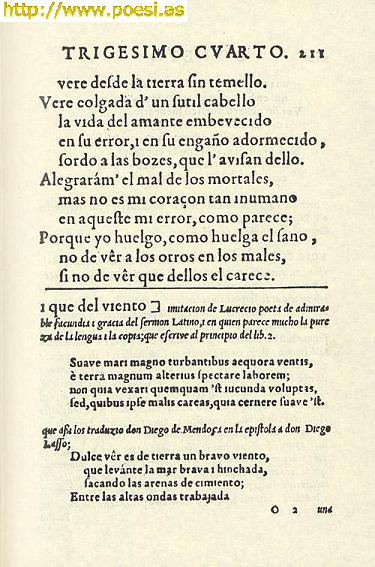 http://www.poesi.as
TRIGESIMO CVARTO. 211
vere desde la tierra sin temello.
Vere colgada d' un sutil cabello
la vida del amante embevecido
en su error, i en su engaño adormecido,
sordo a las bozes, que l' avisan dello.
Alegrarám' el mal de los mortales,
mas no es mi coraçon tan inumano
en aqueste mi error, como parece;
Porque yo huelgo, como huelga el sano,
no de vêr a los otros en los males,
si no de vêr que dellos el carece.
i que del viento ] imitacion de Lucrecio poeta de admira-
ble facundia i gracia del sermon Latino, i en quien parece mucho la pure
za de la lengua i la copia; que escrive al principio del lib. 2.
Suave mari magno turbantibus aequora ventis,
è terra magnum alterius spectare laborem;
non quia vexari quemquam 'st iucunda voluptas,
sed, quibus ipse malis careas, quia cernere suave 'st.
que assi los traduzio don Diego de Mendoça en la epistola a don Diego
Lasso;
Dulce vêr es de tierra un bravo viento,
que levánte la mar brava i hinchada,
sacando las arenas de cimiento;
Entre las altas ondas trabajada
O 2 una